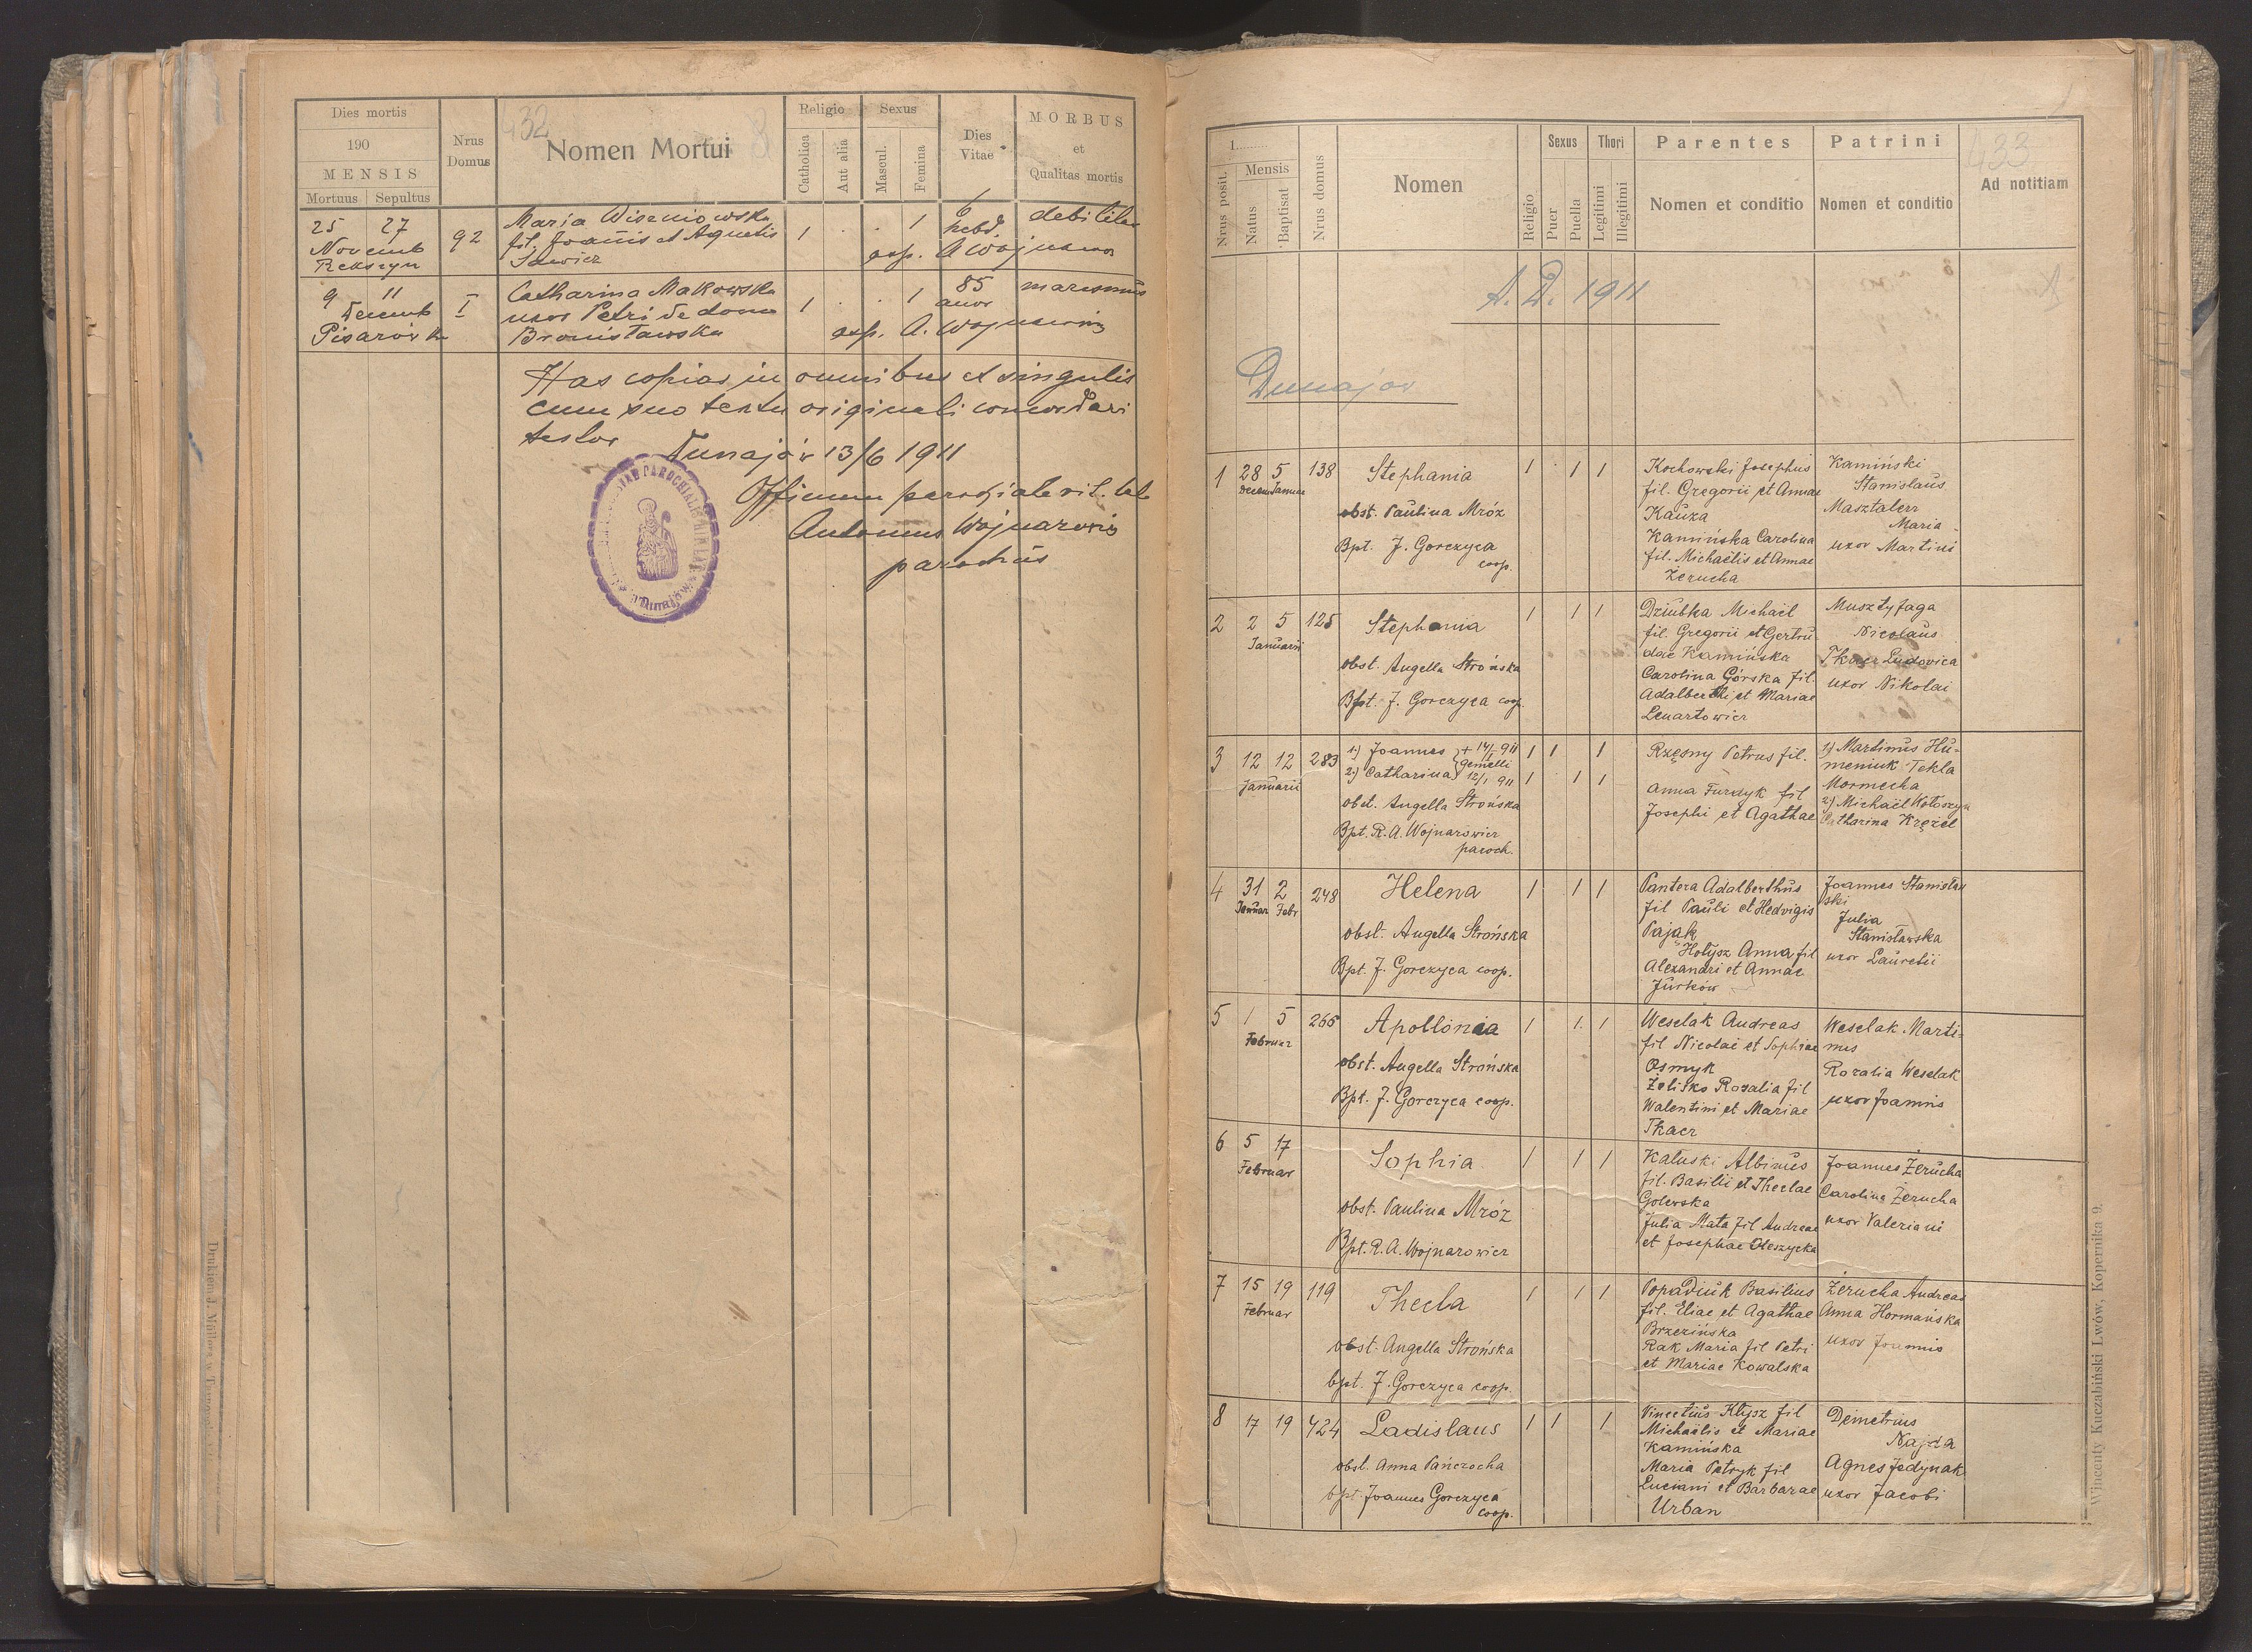 Dies mortis
190
MENSIS
Mortuus Sepultus
Nrus Domus
432
Nomen Mortui
Religio
Catholica
Aut alia
Sexus
Mascul.
Femina
Dies Vitae
MORBUS
et
Qualitas mortis
25 27
Novemb
Rekszyn
92
Maria Wiszniowska
fil. Joannis et Agnetis
1 . . 1
6
hebd.
debilitas
exp. A Wojnarow
9 11
Decemb
Pisarówka
I
Catharina Makowska
uxor Petri de domo
Bronisławska
1 . . 1
85
anor
marasmus
exp. A. Wojnarowicz
Has copias in omnibus et singulis
cum suo textu originali concordari
testor
Dunajów 13/6 1911
Officium parochiale rit. lat.
Antonius Wojnarowicz
parochus
Dunajów
Drukiem J. Müllera w
433
Nrus posit.
1
Mensis
Natus
Baptisat
Nrus domus
Nomen
Religio
Sexus
Puer
Puella
Thori
Legitimi
Illegitimi
Parentes
Nomen et conditio
Patrini
Nomen et conditio
Ad notitiam
A. D. 1911
Dunajów
1 28 5 138 Stephania 1 . 1 1
Decem Januar
obst. Paulina Mróz
Bpt. J. Gorczyca
coop.
Kochowski Josephus
fil. Gregorii et Annae
Kauza
Kamińska Carolina
fil. Michaelis et Annae
Żerucha
Kamiński
Stanislaus
Masztalerz
Maria
uxor Martini
2 2 5 125 Stephania 1 1 1
Januarii
obst. Angella Strońska
Bpt. J. Gorczyca coop.
Dziubka Michael
fil. Gregorii et Gertru
dae Kamińska
Carolina Górska fil.
Adalberthi et Mariae
Lenartowicz
Musztyfaga
Nicolaus
Tkacz Ludovica
uxor Nikolai
3 12 12 283 1.) Joannes + 14/I 911 1 1 1
Januarii
gemelli
2.) Catharina 12/1 911 1 1 1
obst. Angella Strońska
Bpt. R. A. Wojnarowicz
paroch.
Rzęsny Petrus fil.
Anna Furdyk fil
Josephi et Agathae
1) Martinus Hu-
meniuk Tekla
Mormecha
2) Michaël Kołoszyn
Catharina Krężel
4 31 2 248 Helena 1 1 1
Januar Febr
obst. Angella Strońska
Bpt. J. Gorczyca coop.
Pantera Adalberthus
fil Pauli et Hedvigis
Pająk
Hołysz Anna fil
Alexandri et Annae
Jurków
Joannes Stanisław
ski
Julia
Stanisławska
uxor Lauretii
5 1 5 265 Apollonia 1 1 1
Februar
obst. Angella Strońska
Bpt. J. Gorczyca coop.
Weselak Andreas
fil Nicolai et Sophiae
Osmyk
Żelisko Rozalia fil
Walentini et Mariae
Tkacz
Weselak Marti-
nus
Rozalia Weselak
uxor Joannis
6 5 17 Sophia 1 1 1
Februar
obst. Paulina Mróz
Bpt. R. A. Wojnarowicz
Kałuski Albinus
fil. Basilii et Theclae
Golewska
Julia Mata fil Andreae
et Josephae Oleszycka
Joannes Żerucha
Carolina Żerucha
uxor Valeriani
7 15 19 119 Thecla 1 1 1
Februar
obst. Angella Strońska
bpt. J. Gorczyca coop.
Popadiuk Basilius
fil. Eliae et Agathae
Brzezińska
Rak Maria fil Petri
et Mariae Kowalska
Żerucha Andreas
Anna Hormańska
uxor Joannis
8 17 19 424 Ladislaus 1 1 1
obst. Anna Pańczocha
bpt. Joannes Gorczyca
coop.
Vincetius Kłysz fil
Michaëlis et Mariae
Kamińska
Maria Petryk fil
Luciani et Barbarae
Urban
Demetrius
Najda
Agnes Jedynak
uxor Jacobi
Wincenty Kuczabiński Lwów, Kopernika 9.